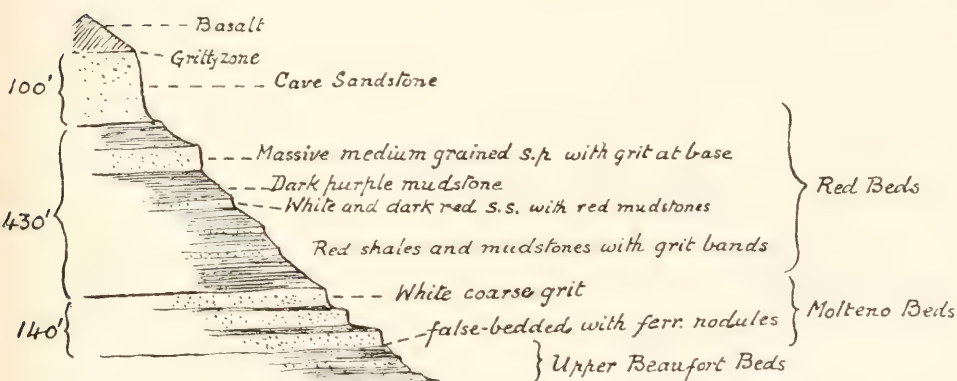 Basalt
Gritty zone
100'
Cave Sandstone
Massive medium grained s.p. with grit at base
Dark purple mudstone
White and dark red s.s. with red mudstones
Red Beds
430'
Red shales and mudstones with grit bands
White coarse grit
Molteno Beds
140'
false-bedded, with ferr. nodules
Upper Beaufort Beds